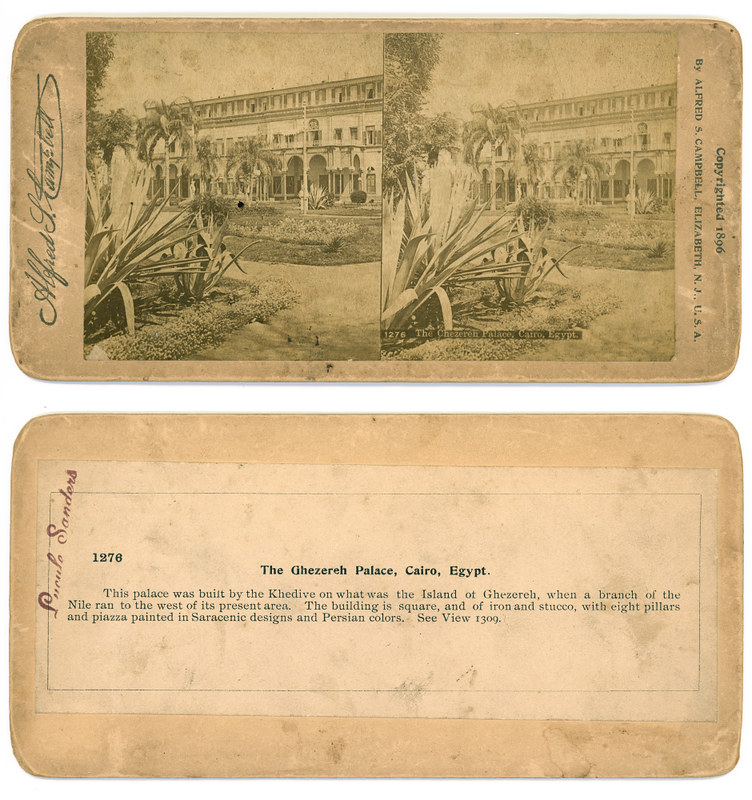 Alfred S. Campbell
1276 The Ghezereh Palace, Cairo, Egypt.
Copyrighted 1896
By ALFRED S. CAMPBELL, ELIZABETH, N. J., U. S. A.
Sanders
1276
The Ghezereh Palace, Cairo, Egypt.
This palace was built by the Khedive on what was the Island of Ghezereh, when a branch of the
Nile ran to the west of its present area. The building is square, and of iron and stucco, with eight pillars
and piazza painted in Saracenic designs and Persian colors. See View 1309.